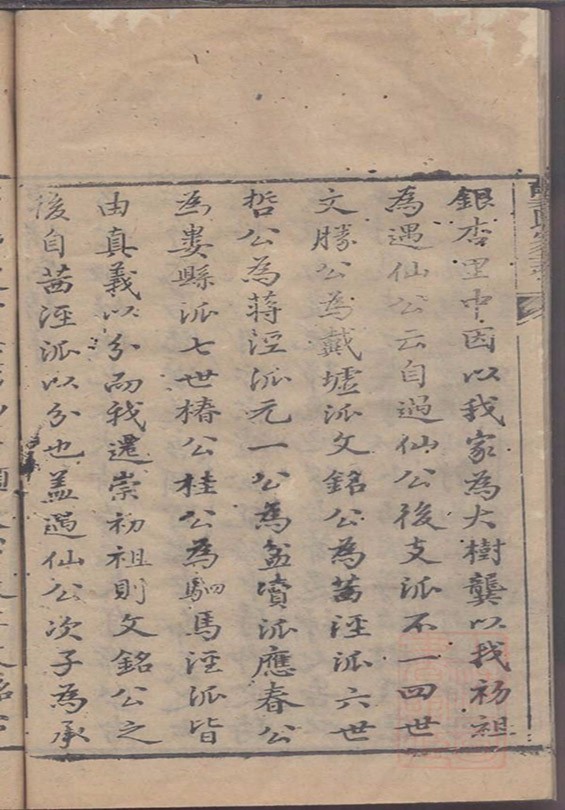 銀杏里中因以我家為大樹龔以我初祖
為遇仙公云自遇仙公後支派不一四世
文勝公為戴墟派文銘公為茜涇派六世
哲公為蔣涇派元一公為盆瀆派應春公
為婁縣派七世椿公桂公為駟馬涇派皆
由真義以分而我遷崇初祖則文銘公之
後自茜涇派以分也盖遇仙公次子為承